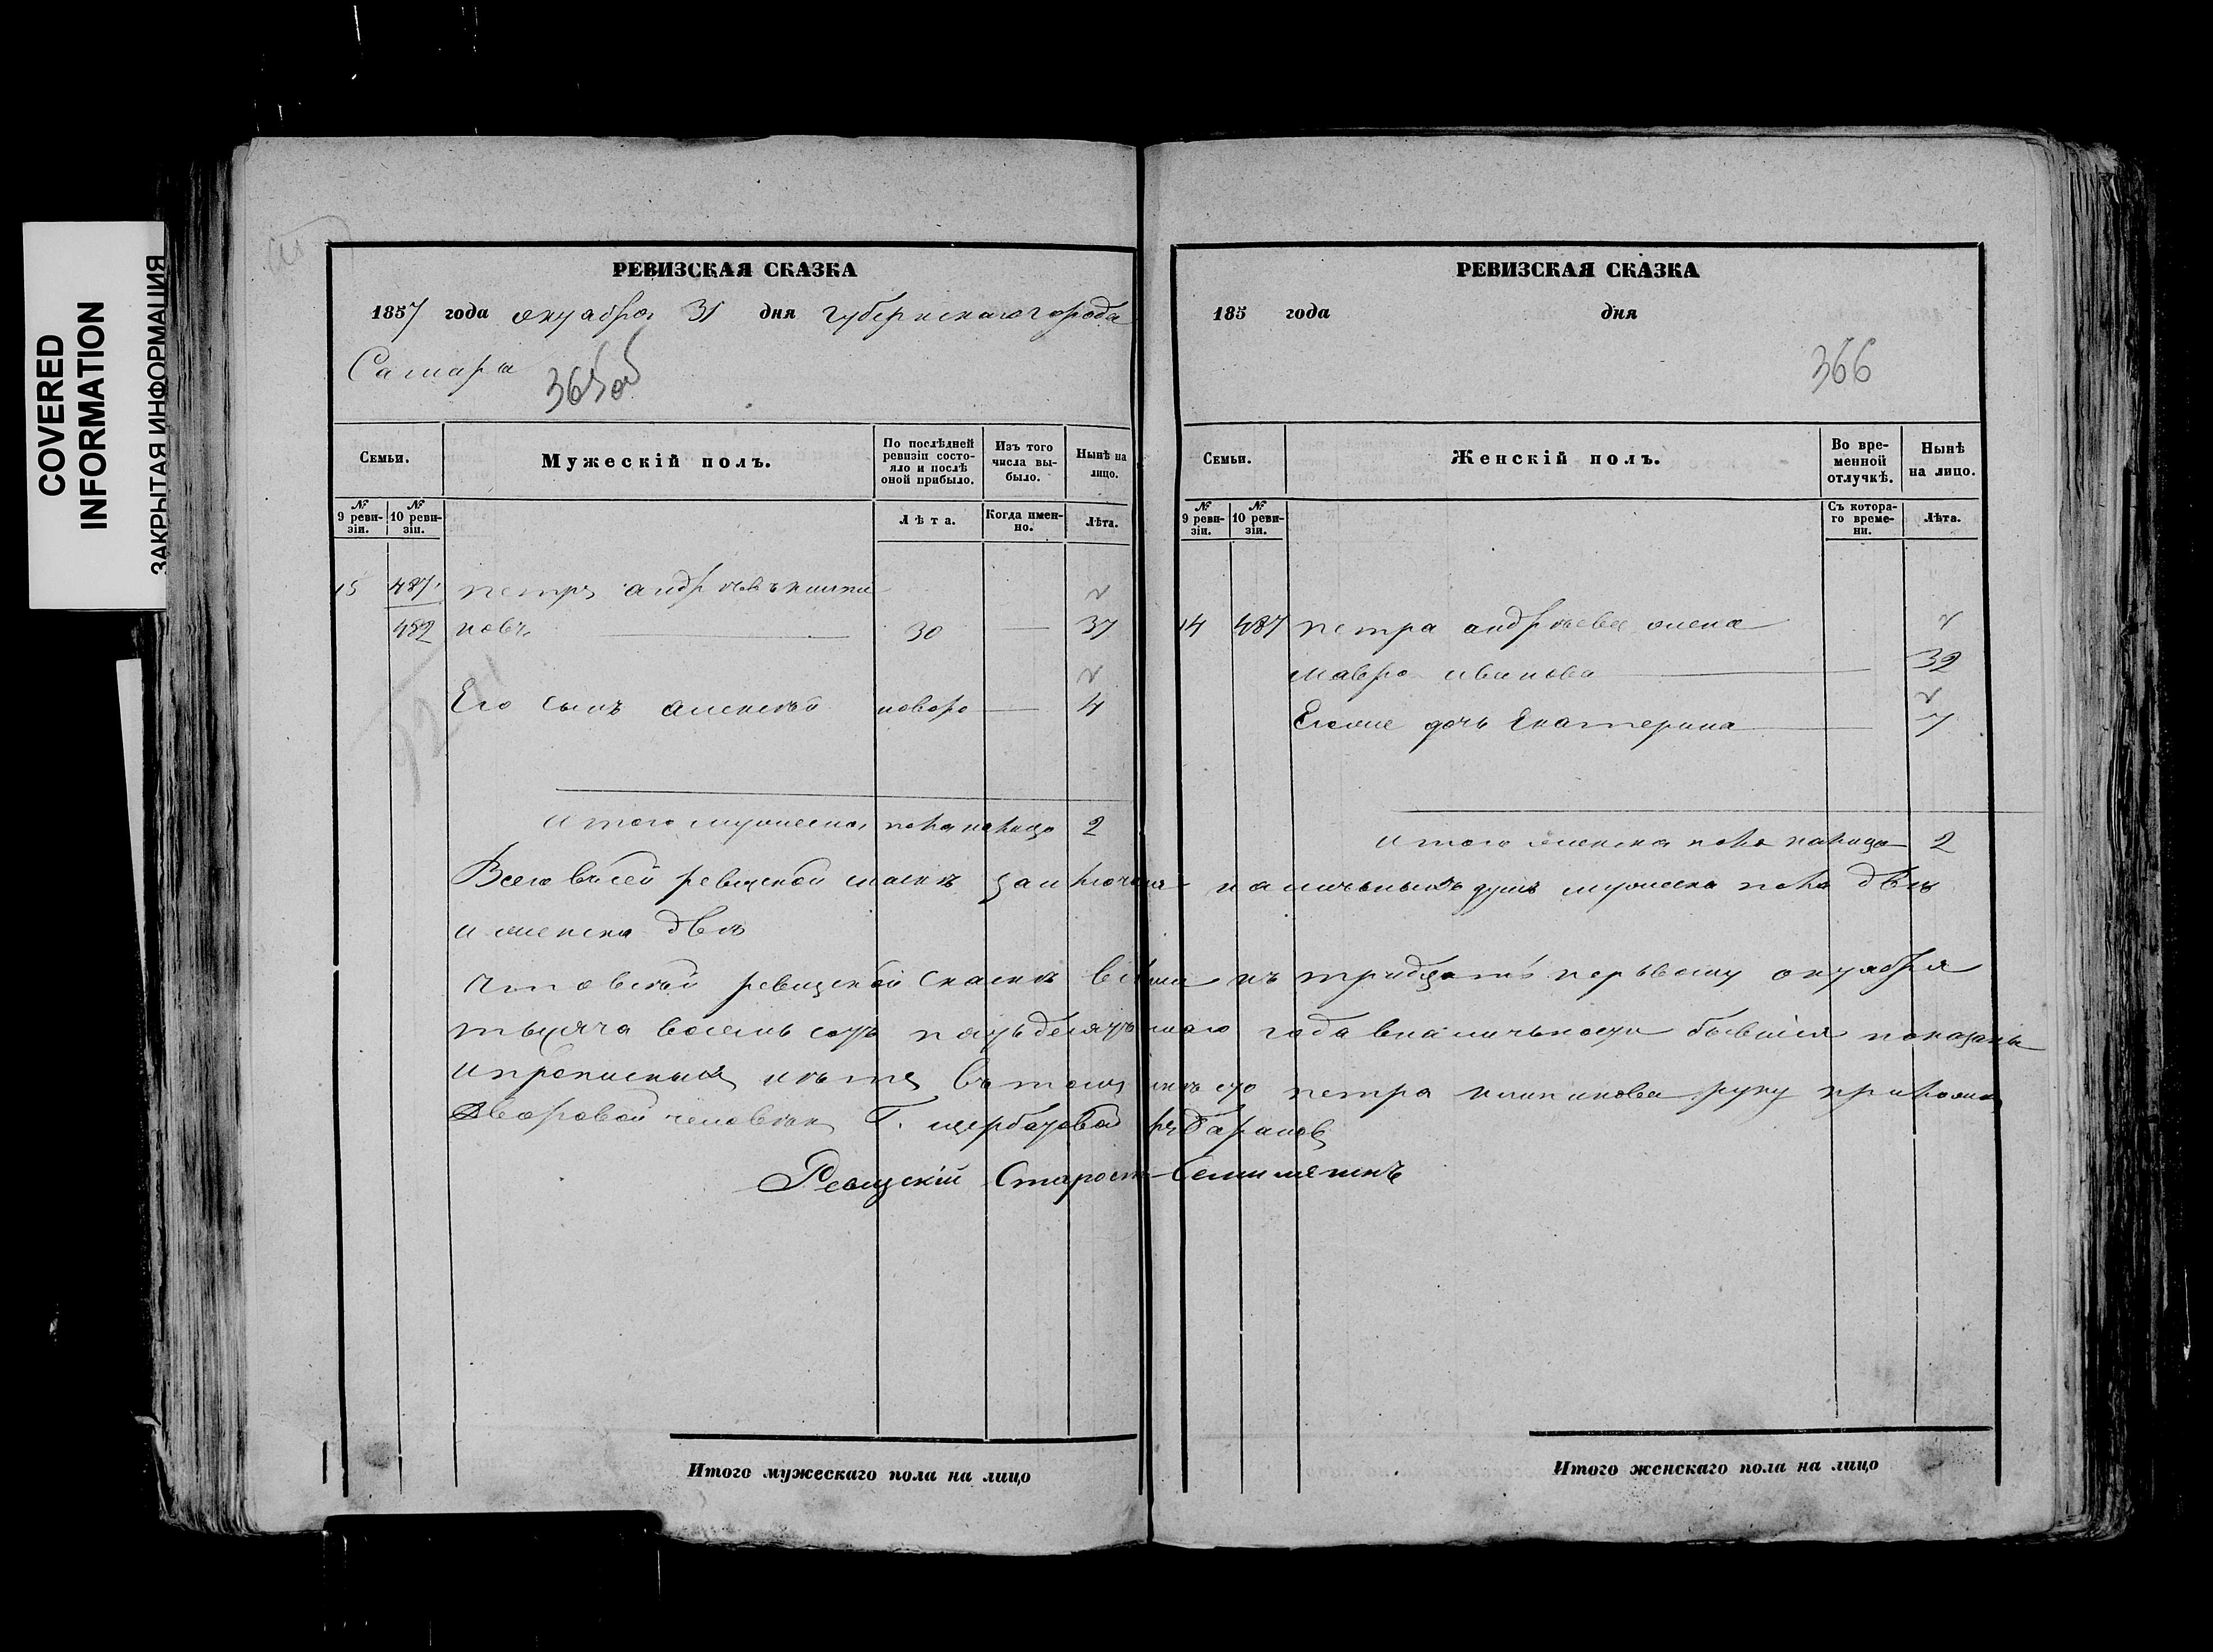 COVERED
INFORMATION
ЗАКРЫТАЯ ИНФОРМАЦИЯ
РЕВИЗСКАЯ СКАЗКА
1857 года октября 31 дня губернскаго города
Самары
365об
Семьи.
Мужескій полъ.
По послѣдней ревизіи состояло и послѣ оной прибыло.
Изъ того числа выбыло.
Нынѣ на лицо.
№ 9 ревизіи.
№ 10 ревизіи.
Лѣта.
Когда именно.
Лѣта.
15 487
Петръ Андреевъ
482 новъ 30 — 37
Его сынъ Алексей новоро — 4
итого мужеска пола налицо 2
РЕВИЗСКАЯ СКАЗКА
185 года дня
366
Семьи.
Женскій полъ.
Во временной отлучкѣ.
Нынѣ на лицо.
№ 9 ревизіи.
№ 10 ревизіи.
Съ котораго времени.
Лѣта.
14 487 Петра Андреева жена
Мавра Иванова 32
Егоже дочь Екатерина 7
итого женска пола налицо 2
Всего в сей ревизской скаске заключена наличныхъ душъ мужеска пола двѣ
и женска двѣ
ревизской скаске всѣ къ тридцать первому октября
тысяча восемь сотъ года вналичности бывшия показаны
Петра руку приложилъ
Дворовой человѣкъ Г. Щербатовой Барановъ
Ревизскій Староста
Итого мужескаго пола на лицо
Итого женскаго пола на лицо